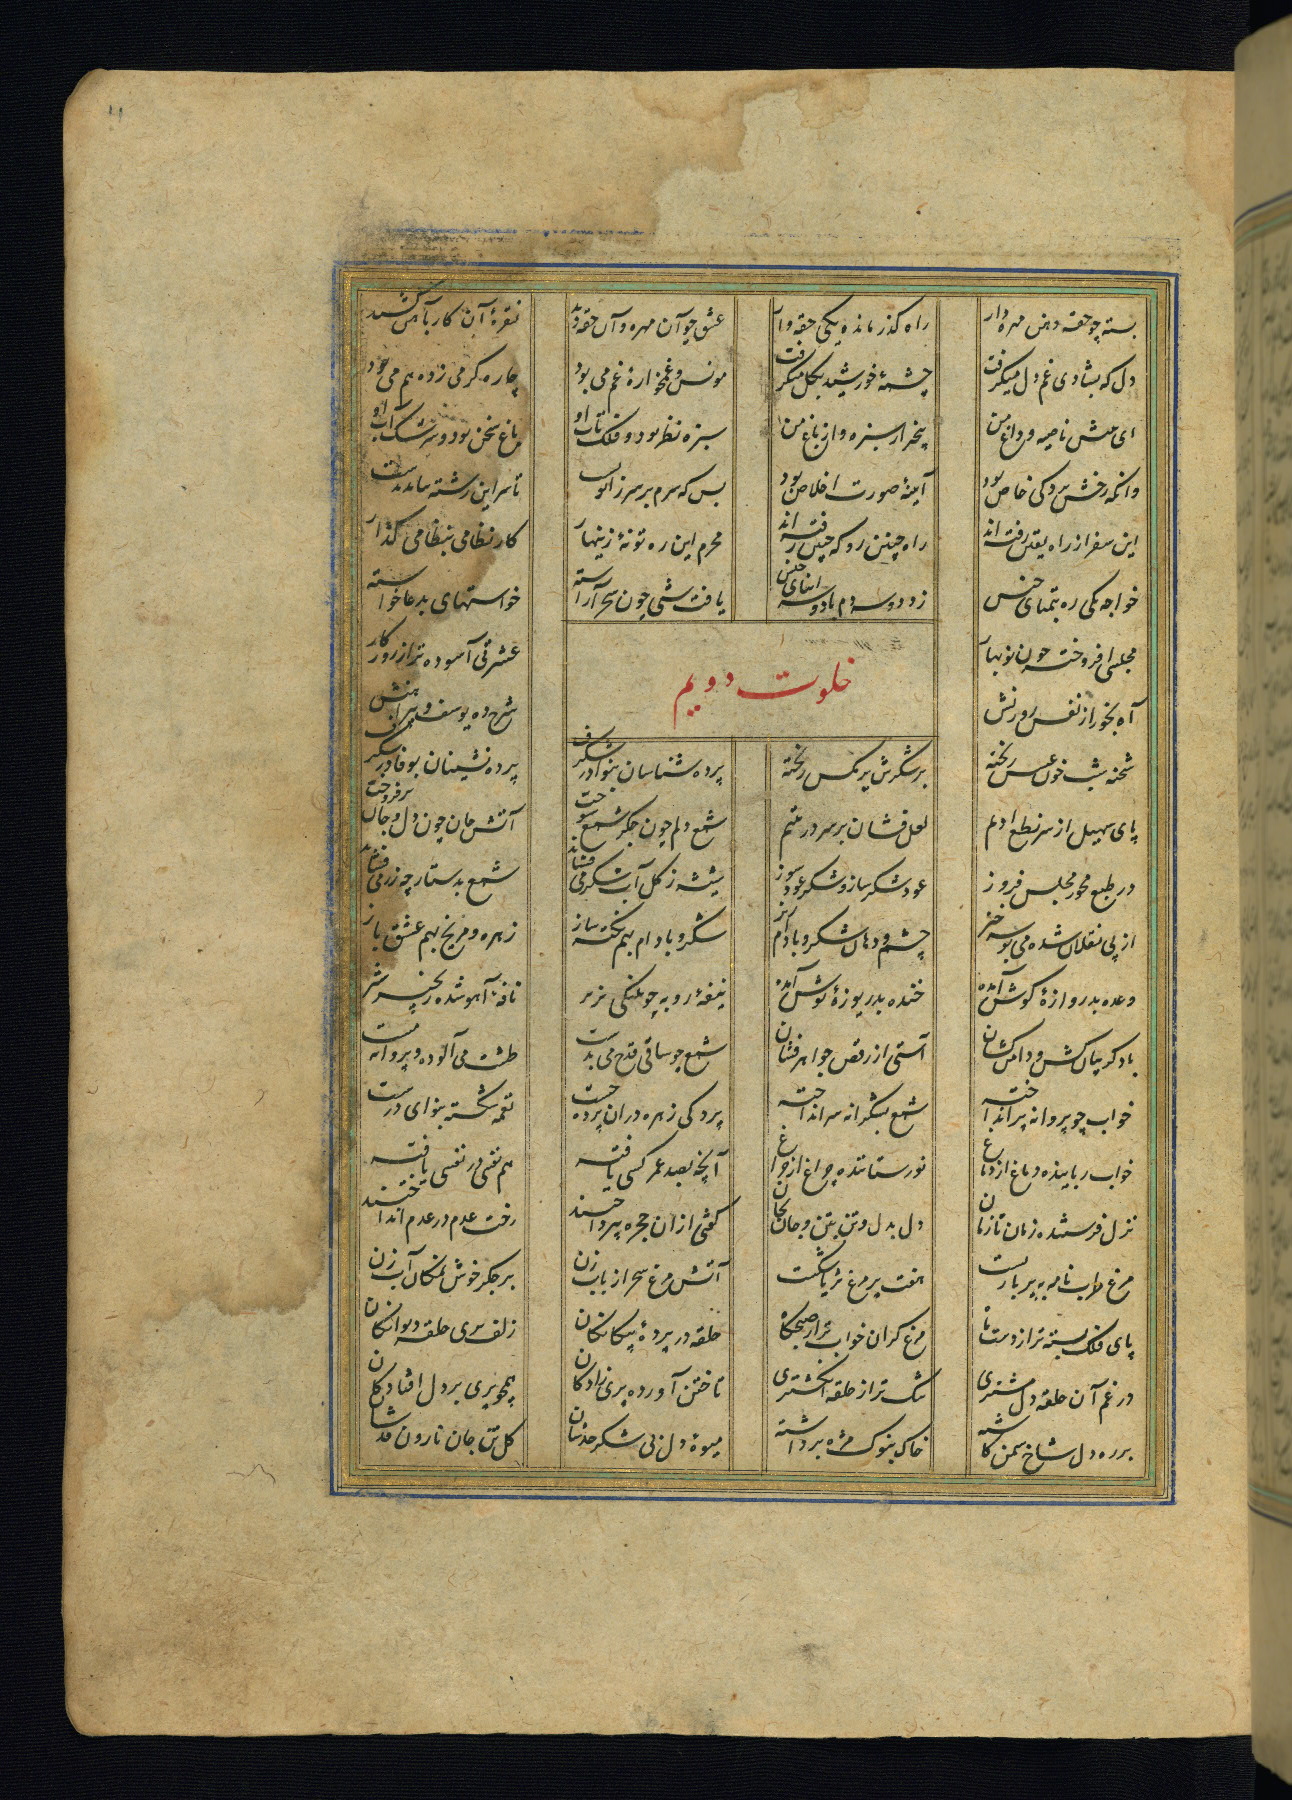 بسته چو حقه دهن مهره دار راه گذر مانده یکی حقه وار عشق چو آن مهره و آن حقه دید نقرهٔ آن کار بآهن کشید
دل که بشادی غم دل میگرفت چشمهٔ خورشید بگل میگرفت مونس و غمخوارهٔ غم می بود چاره گر می زده هم می بود
ای تبش ناصیه و داغ من بیخبر از سبزه و از باغ من سبزه نظر بود و فلک تاب او باغ سخن بود و سرشک آب او
وانکه رخش پردکی خاص بود آینهٔ صورت اخلاص بود بس که سرم بر سر زانو تا سر این رشته بیامد بدست
این سفر از راه یقین رفته اند راه چنین رو که چنین رفته اند محرم این ره تو نهٔ زینهار کار نظامی بنظامی گذار
خواجه یکی ره بتمنای جنس زد دو سه دم با دو سه ابنای جنس یافت شبی چون سحر آراسته خواستهای بدعا خواسته
مجلسی افروخته چون نوبهار عشرتی آسوده تر از روزگار
آه بخور از نفس روزنش شرح ده یوسف و پیراهنش
خلوت دویم
شحنه شب خون عسس ریخته بر شکرش پر مکس ریخته پرده شناسان بنوا در شگرف پرده نشینان بوفا در شگرف
پای سهیل از سر نطع ادیم لعل فشان بر سر در یتیم شمع دلم چون جگر شمع سوخت آتش جان چون دل و جان برفروخت
در طبع مجمر مجلس فروز عود شکر ساز و شکر عود سوز شیشه ز گل آب شکر می فشاند شمع بدستارچه زر می فشاند
از پی نقلان شده می بوسه خیز چشم و دهان شکر و بادام ریز شکر و بادام بهم نکته ساز زهره و مریخ بهم عشق باز
وعده بدروازهٔ کوش آمده خنده بدریوزهٔ نوش آمده نیفهٔ روبه چو پلنگی بزیر نافهٔ آهو شده زنجیر شیر
باد گریبان کش و دامن کشان آستی از رقص جواهر فشان شمع چو ساقی قدح می بدست طشت می آلوده و پروانه مست
خواب چو پروانه پر انداخته شمع بشکرانه سر انداخته پردکی زهره دران پرده چست نغمه شکسته بنوای درست
خواب رباینده دماغ از دماغ نور ستاننده چراغ از چراغ آنچه بصد عمر کسی یافته هم نفسی در نفسی یافته
نزل فرستنده زمان تا زمان دل بدل و تن بتن و جان بجان گفتی ازان حجره پرداختند رخت عدم در عدم انداختند
مرغ طرب نامه به پر باز بست هفت پر مرغ ثریا شکست آتش مرغ سحر از باب زن بر جگر خوش نمکان آب زن
پای فلک بسته تر از دست ماه مرغ گران خواب تر از صبحگاه حلقه در پردهٔ بیگانگان زلف پری حلقه دیوانگان
در غم آن حلقه دل مشتری تنگ تر از حلقه انگشتری تاختن آورده پری زادگان همچو پری بر دل افتادگان
بر ره دل شاخ سمن کاشته خاک بنوک مژه برداشته میوهٔ دل نی شکر خدشان گلبن جان نارون قدشان